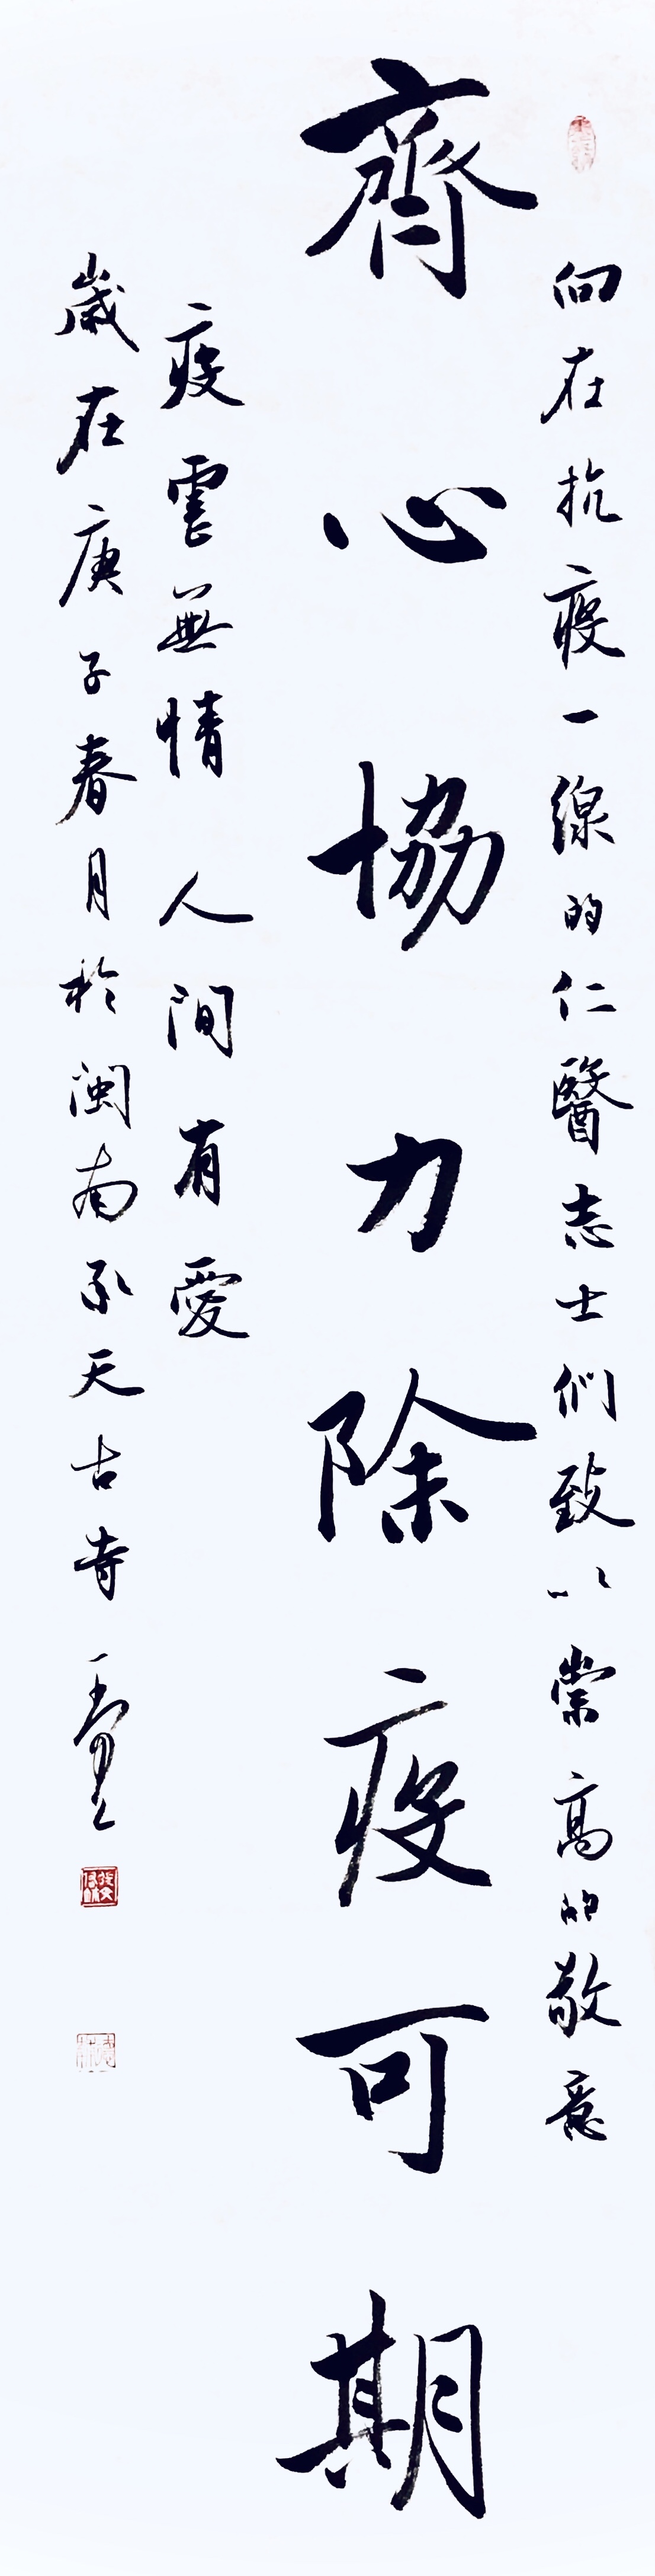 向在抗疫一線的仁醫志士們致以崇高的敬意
齊心協力除疫可期
疫雲無情人間有愛
歲在庚子春月於閩南承天古寺